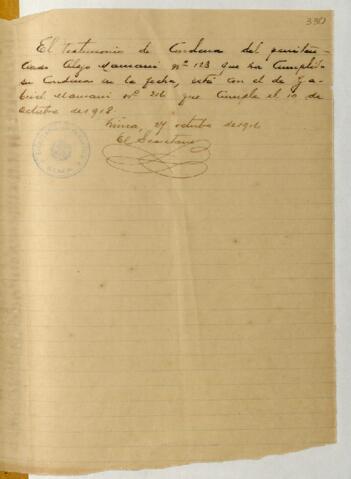 330
El testimonio de Condena del peniten-
ciado Alejo Mamani nº 123 que ha cumplido
su Condena en la fecha, está con el de Ga-
briel Mamani nº 216 que cumple el 10 de
octubre de 1918.
Lima, 27 octubre de 1916
El Secretario
LIMA